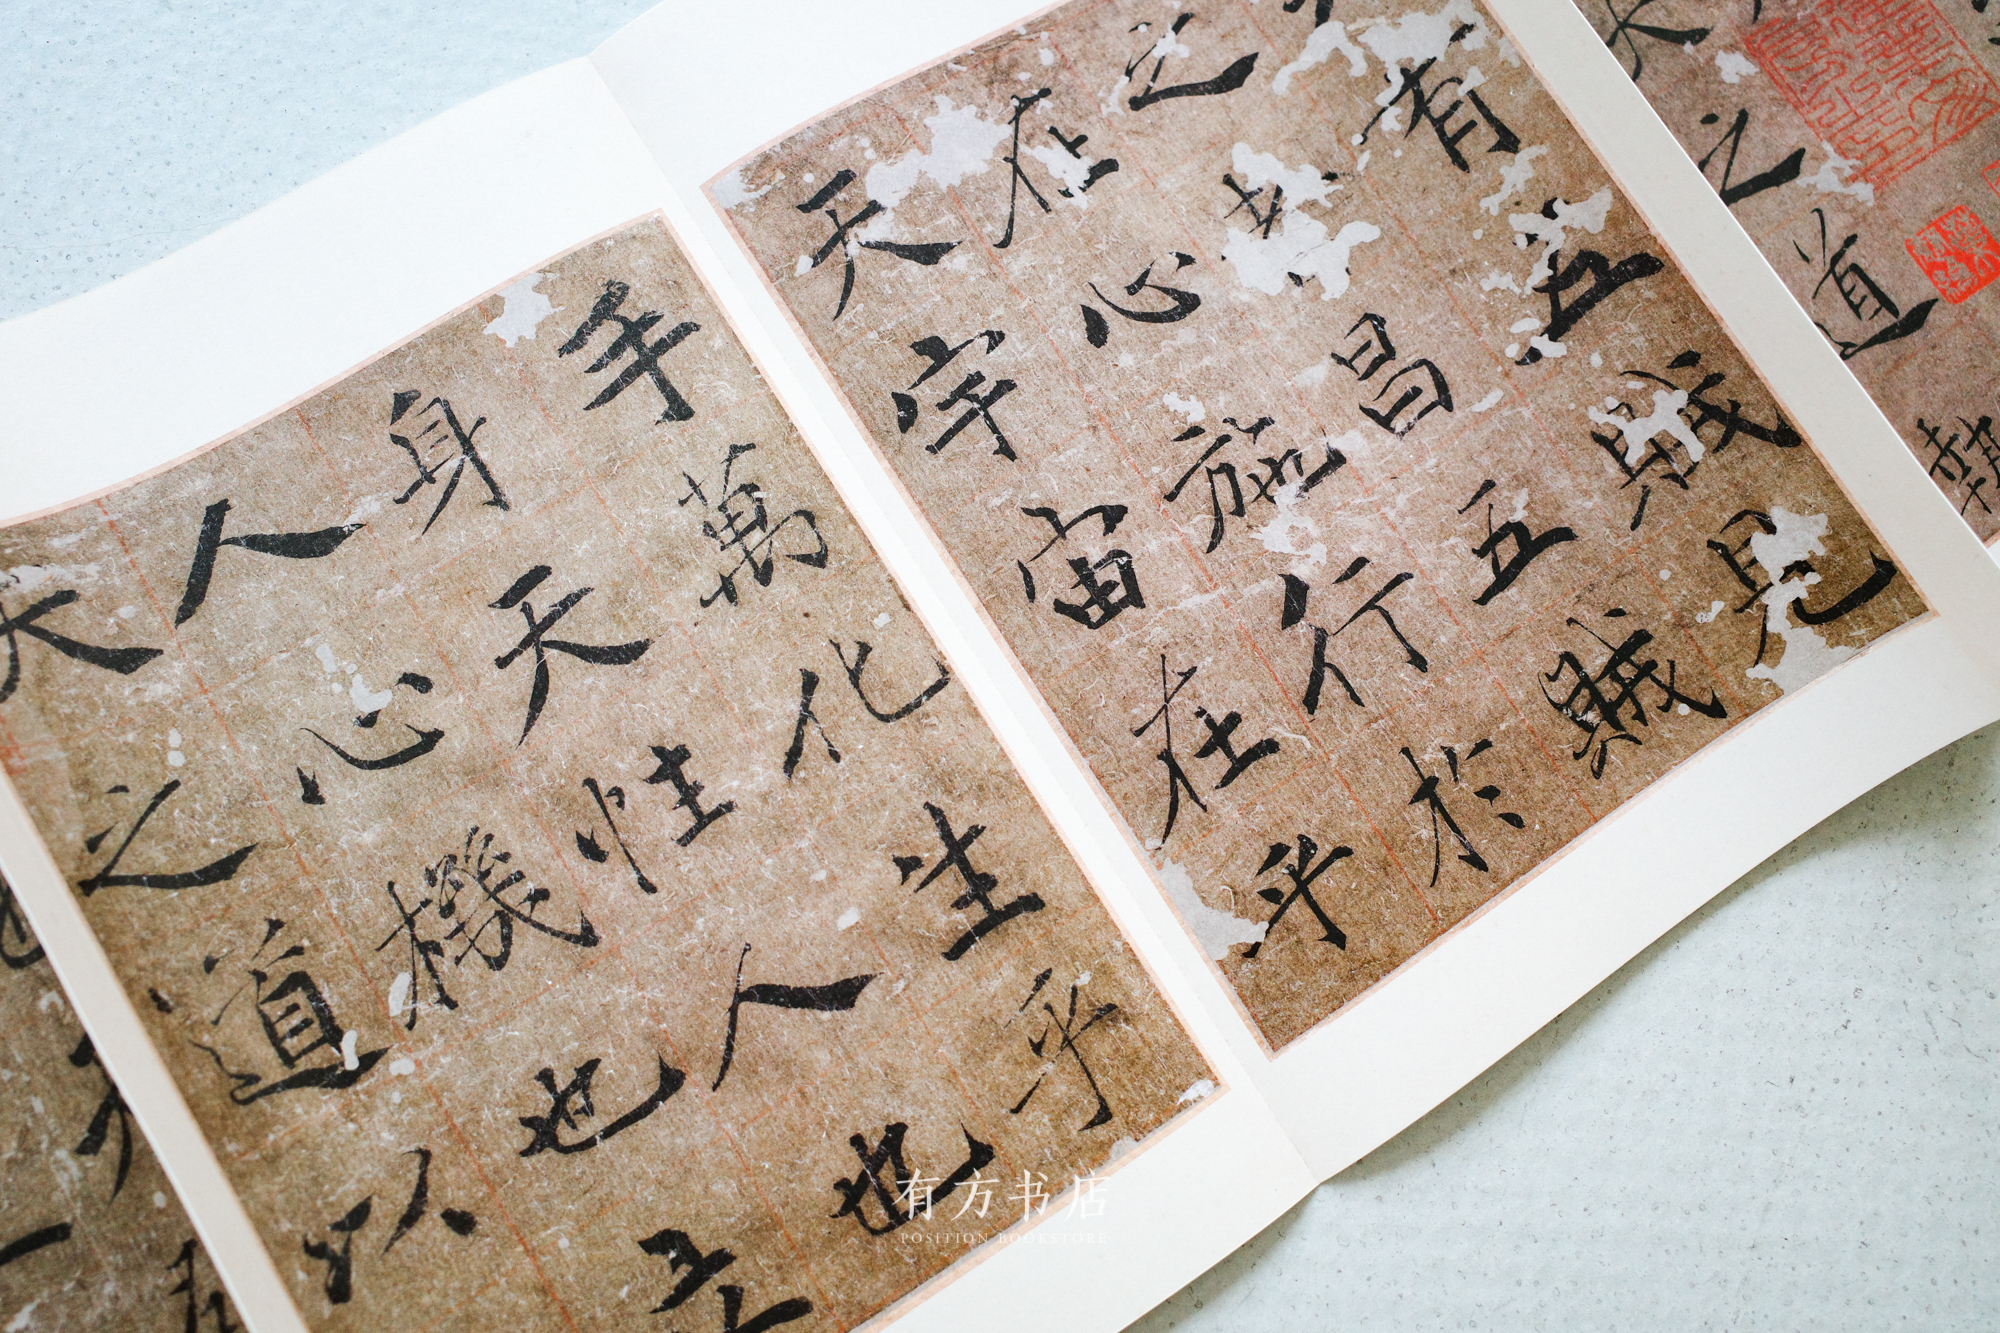 之道執
有五賊見
之者昌五賊
在心施行於
天宇宙在乎
手萬化生乎
身天性人也
人心機也立
天之道以
有方书店
POSITION BOOKSTORE